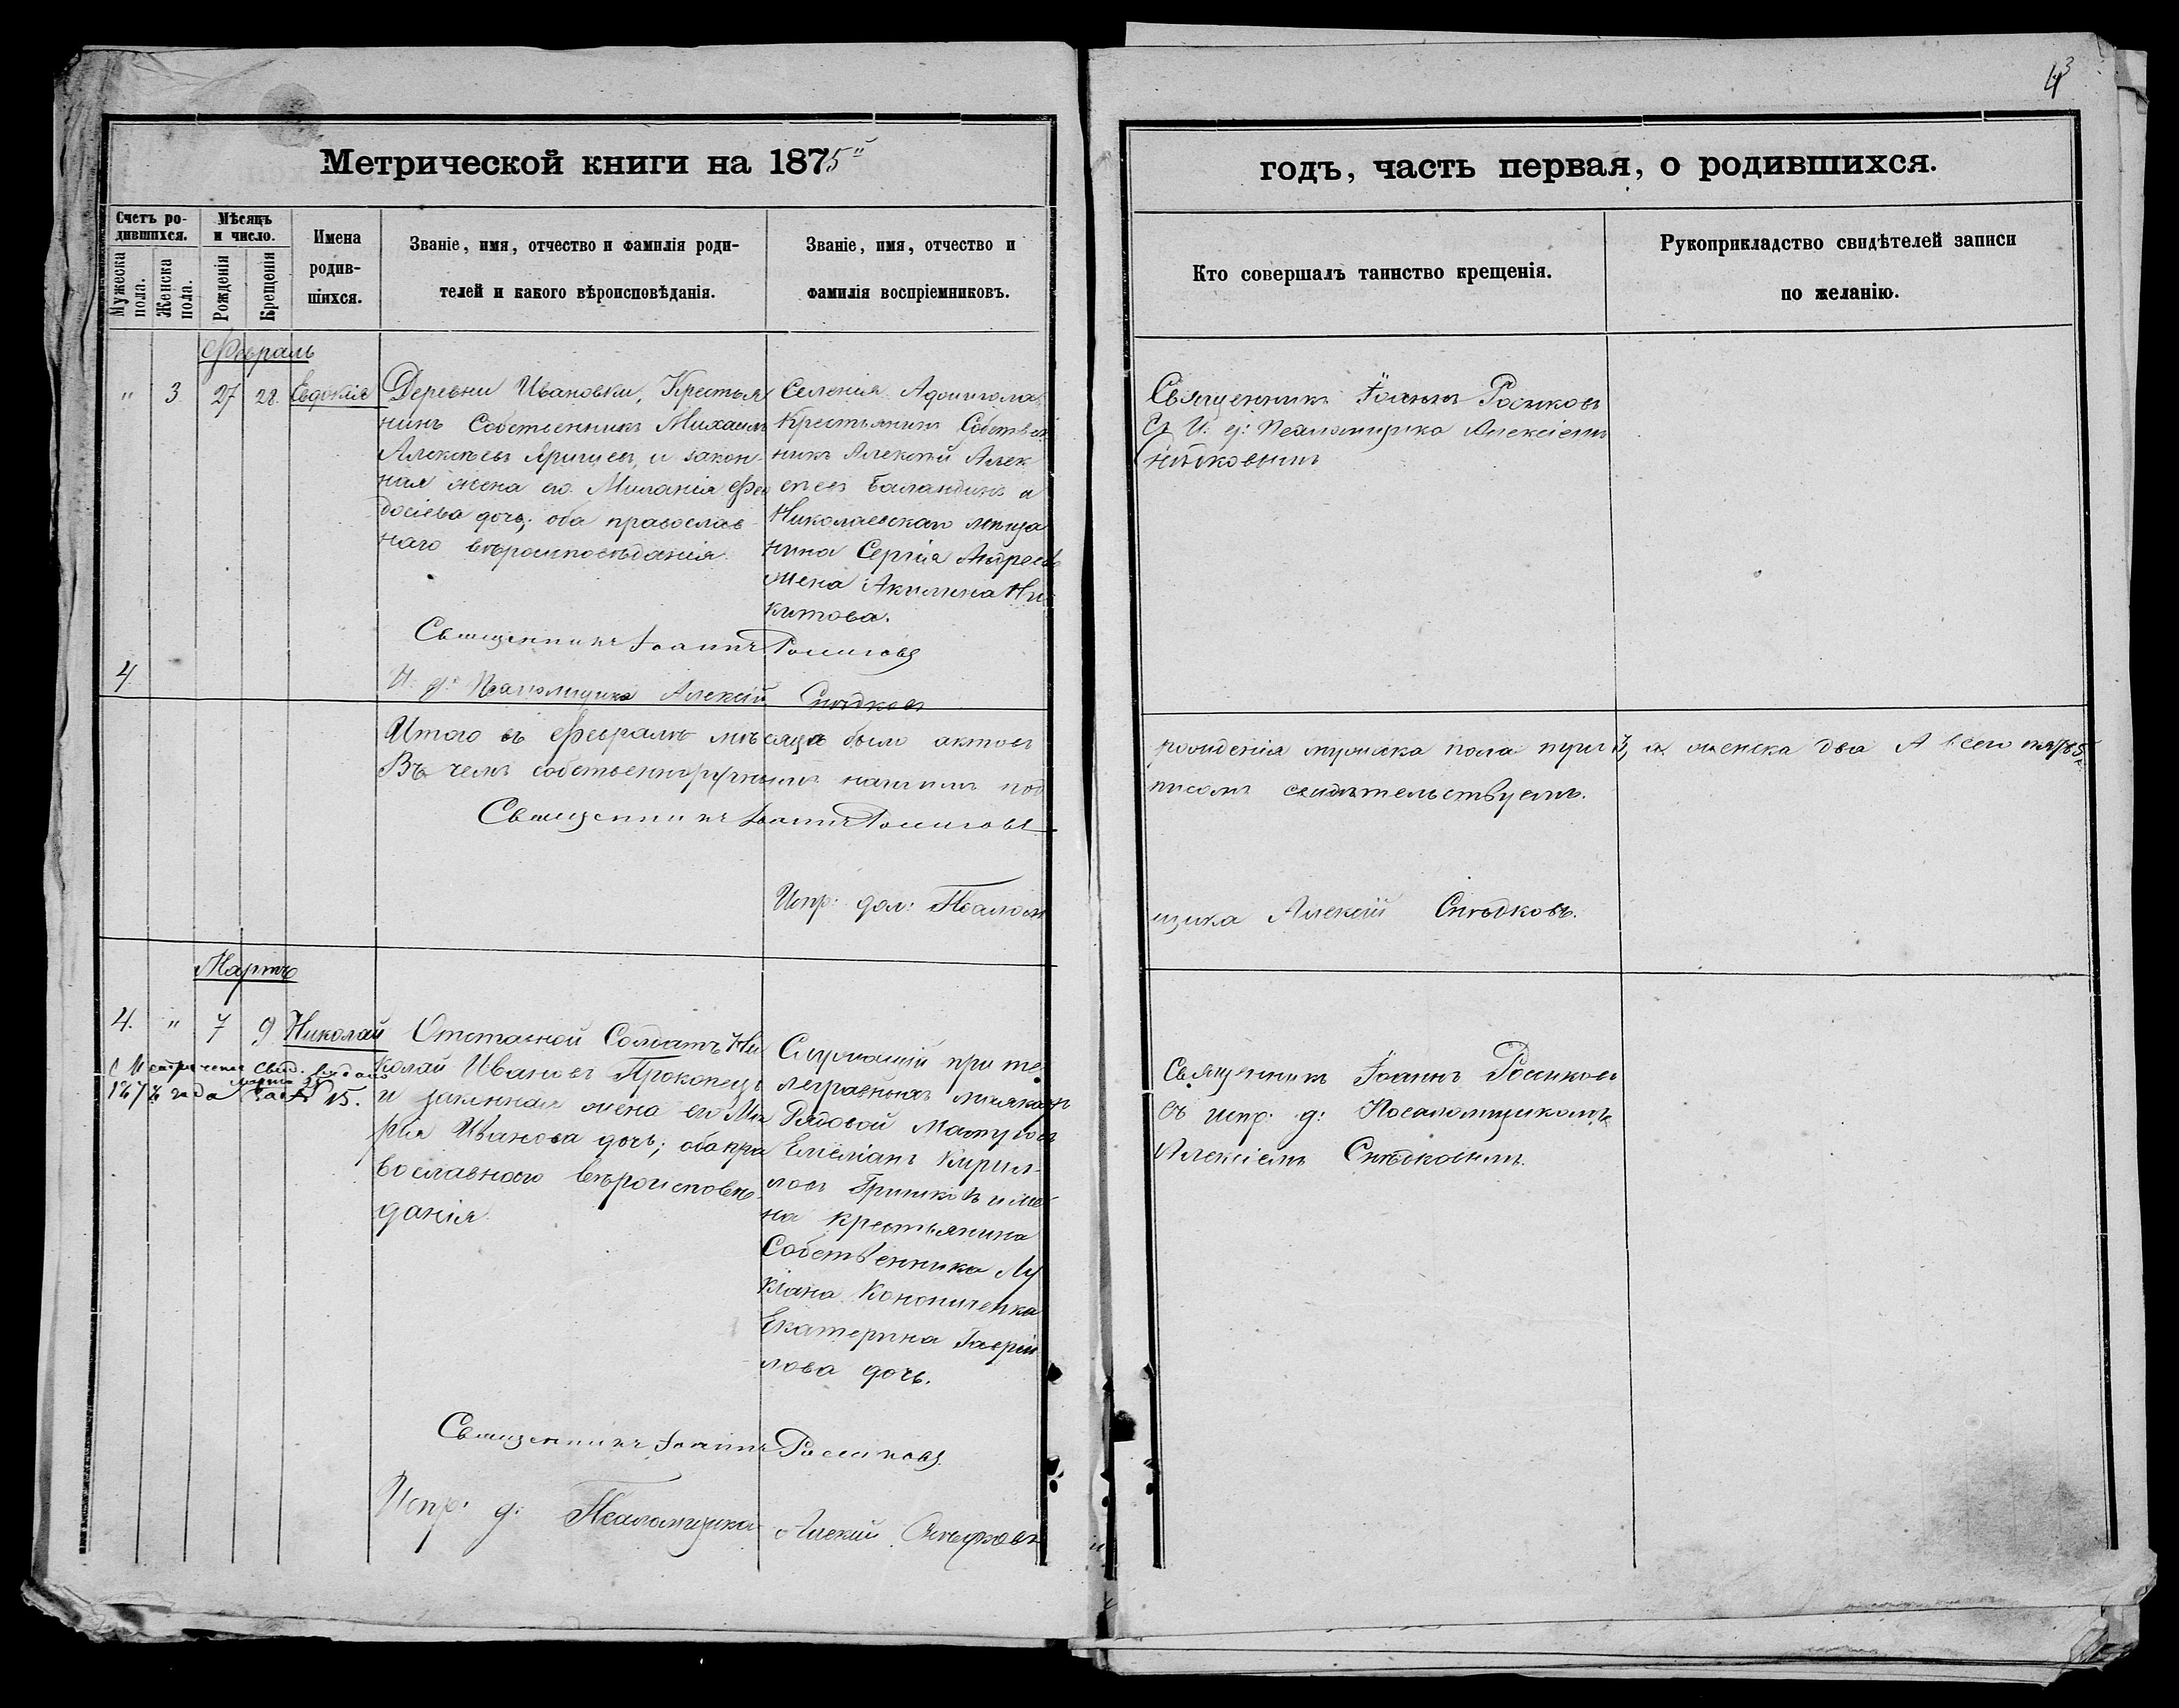 43
Метрической книги на 1875й
годъ, часть первая, о родившихся.
Счетъ ро-
дившихся.
Мужеска пола.
Женска пола.
Мѣсяцъ
и число.
Рожденія
Крещенія
Имена
родив-
шихся.
Званіе, имя, отчество и фамилія роди-
телей и какого вѣроисповѣданія.
Званіе, имя, отчество и
фамилія воспріемниковъ.
Кто совершалъ таинство крещенія.
Рукоприкладство свидѣтелей записи
по желанію.
Февраль
" 3 27 28 Евдокія
Деревни Ивановки, Крестья
нинъ Собственникъ Михаилъ
Алексѣевъ и закон-
ная жена его Миланія Фео
досіева дочь; оба православ-
наго вѣроисповѣданія.
Селенія
Крестьянинъ Собствен
никъ Алексѣй Алек
сѣевъ Баландинъ и
Николаевскаго мѣща
нина Сергія Андреева
жена Акилина Ни
китова.
Священникъ Іоаннъ Росиковъ
Съ И: д: Псаломщика Алексіемъ
Священникъ Іоаннъ Росиковъ
4
И. д: Псаломщика Алексій Снѣдковъ
Итого въ Февралѣ мѣсяцѣ было актовъ рожденія мужска пола три 3, а женска два А всего пять 5,
Въ чемъ собственноручнымъ нашимъ под писомъ свидѣтельствуемъ.
Священникъ Іоаннъ Росиковъ
Испр: дол: Псалом щика Алексій Снѣдковъ.
Мартъ
4. " 7 9 Николай
Метрическ свид. выдано
187 года марта 25 за № 15.
Отставной Солдатъ Ни
колай Ивановъ Прокопецъ
и законная жена его Ма
рія Иванова дочь; оба пра
вославного вѣроисповѣ-
данія
Служащій при те
леграфныхъ маякахъ
Рядовой Матусов
Емеліанъ Кирил-
ловъ Гришковъ и же
на крестьянина
Собственника Лу
кіана Кононученка
Екатерина Гаврій
лова дочь.
Священникъ Іоаннъ Росиковъ
съ испр: д: Псаломщикомъ
Алексіемъ Снѣдковымъ.
Священникъ Іоаннъ Росиковъ
Испр: д: Псаломщика Алексій Снѣдковъ